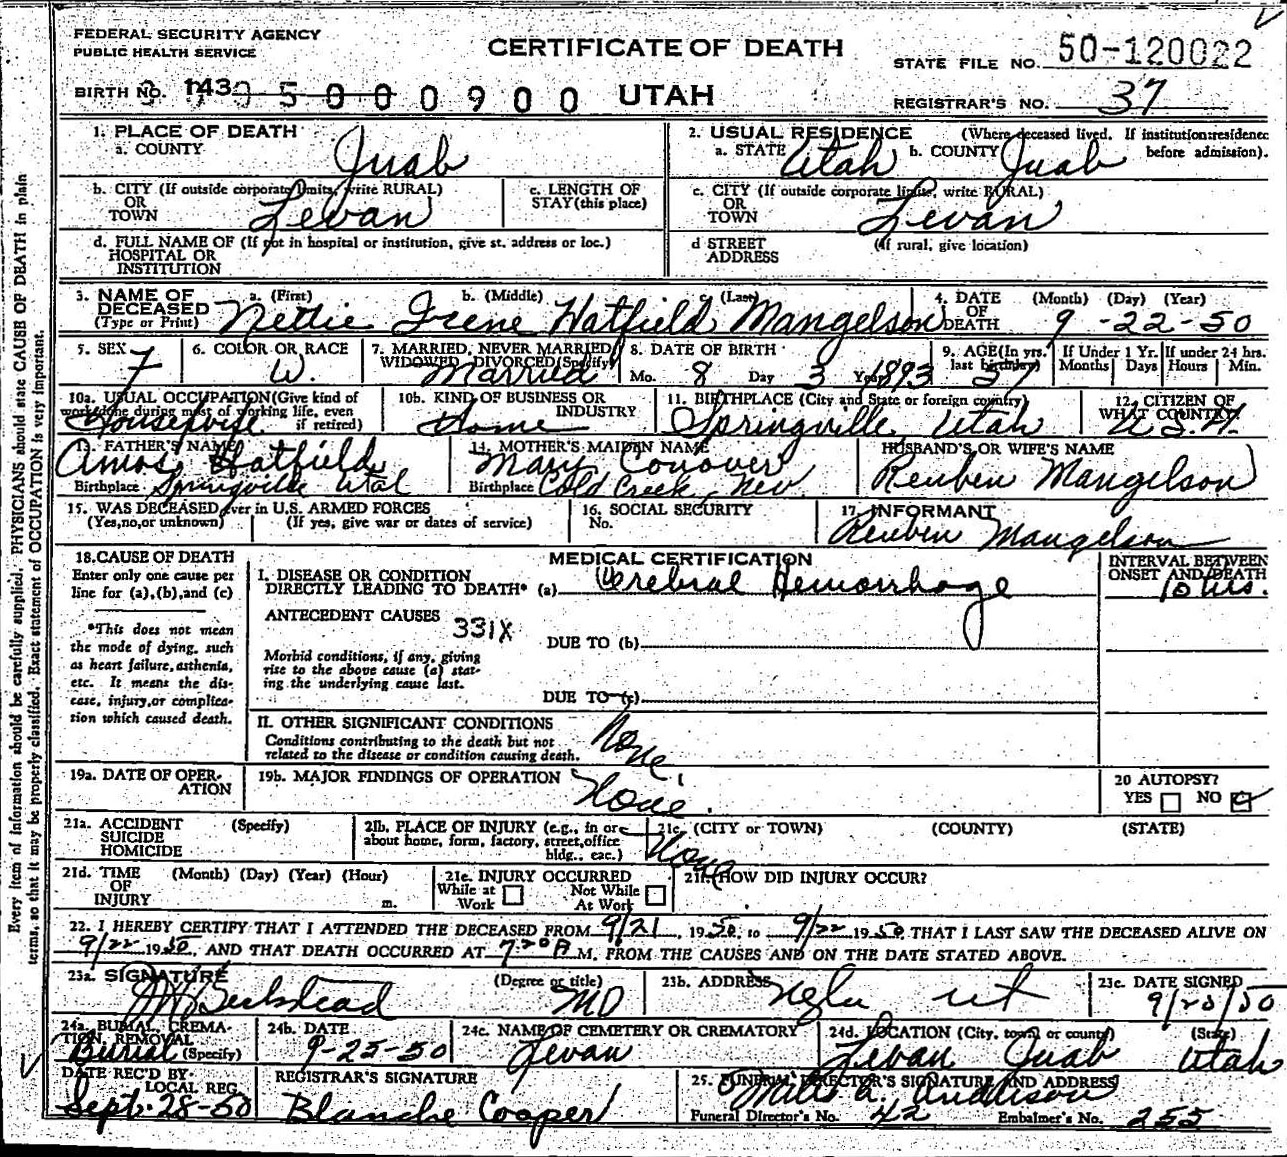 FEDERAL SECURITY AGENCY
PUBLIC HEALTH SERVICE
CERTIFICATE OF DEATH
STATE FILE NO. 50-120022
BIRTH NO. 143
000900
UTAH
REGISTRAR'S NO. 37
1. PLACE OF DEATH
a. COUNTY Juab
2. USUAL RESIDENCE (Where deceased lived. If institution:residence before admission).
a. STATE Utah b. COUNTY Juab
b. CITY (If outside corporate limits, write RURAL)
OR
TOWN Levan
c. LENGTH OF
STAY (this place)
c. CITY (If outside corporate limits, write RURAL)
OR
TOWN Levan
d. FULL NAME OF (If not in hospital or institution, give st. address or loc.)
HOSPITAL OR
INSTITUTION
d STREET (If rural, give location)
ADDRESS
3. NAME OF DECEASED (Type or Print) a. (First) b. (Middle) c. (Last)
Nettie Irene Hatfield Mangelson
4. DATE OF DEATH (Month) (Day) (Year)
9-22-50
5. SEX F
6. COLOR OR RACE W.
7. MARRIED, NEVER MARRIED, WIDOWED, DIVORCED (Specify) Married
8. DATE OF BIRTH
Mo. 8 Day 3 Year 1893
9. AGE (In yrs. last birthday) 57
If Under 1 Yr. Months Days
If under 24 hrs. Hours Min.
10a. USUAL OCCUPATION (Give kind of work done during most of working life, even if retired) Housewife
10b. KIND OF BUSINESS OR INDUSTRY Home
11. BIRTHPLACE (City and State or foreign country) Springville Utah
12. CITIZEN OF WHAT COUNTRY U.S.A.
13. FATHER'S NAME
Amos Hatfield
Birthplace Springville Utah
14. MOTHER'S MAIDEN NAME
Mary Conover
Birthplace Cold Creek, Nev
HUSBAND'S OR WIFE'S NAME
Reuben Mangelson
15. WAS DECEASED ever in U.S. ARMED FORCES
(Yes,no,or unknown) (If yes, give war or dates of service)
16. SOCIAL SECURITY
No.
17. INFORMANT
Reuben Mangelson
18. CAUSE OF DEATH
Enter only one cause per
line for (a),(b),and (c)
*This does not mean
the mode of dying, such
as heart failure, asthenia,
etc. It means the dis-
ease, injury, or complica-
tion which caused death.
MEDICAL CERTIFICATION
I. DISEASE OR CONDITION
DIRECTLY LEADING TO DEATH* (a) Cerebral Hemorrhage
INTERVAL BETWEEN
ONSET AND DEATH
10 hrs.
ANTECEDENT CAUSES
331X
DUE TO (b)
Morbid conditions, if any, giving
rise to the above cause (a) stat-
ing the underlying cause last.
DUE TO (c)
II. OTHER SIGNIFICANT CONDITIONS
Conditions contributing to the death but not
related to the disease or condition causing death.
None
19a. DATE OF OPER-
ATION
19b. MAJOR FINDINGS OF OPERATION
None.
20 AUTOPSY?
YES NO
21a. ACCIDENT (Specify)
SUICIDE
HOMICIDE
21b. PLACE OF INJURY (e.g., in or
about home, form, factory, street, office
bldg., eac.)
21c. (CITY or TOWN) (COUNTY) (STATE)
None
21d. TIME (Month) (Day) (Year) (Hour)
OF
INJURY m.
21e. INJURY OCCURRED
While at Work Not While At Work
21f. HOW DID INJURY OCCUR?
22. I HEREBY CERTIFY THAT I ATTENDED THE DECEASED FROM 9/21, 1950, to 9/22 1950 THAT I LAST SAW THE DECEASED ALIVE ON
9/22 1950, AND THAT DEATH OCCURRED AT 7:20A M. FROM THE CAUSES AND ON THE DATE STATED ABOVE.
23a. SIGNATURE (Degree or title)
Beckstead MD
23b. ADDRESS
ut
23c. DATE SIGNED
24a. BURIAL, CREMA-
TION, REMOVAL
Burial (Specify)
24b. DATE
9-25-50
24c. NAME OF CEMETERY OR CREMATORY
Levan
24d. LOCATION (City, town or county) (State)
Levan Juab Utah
DATE REC'D BY
LOCAL REG.
Sept. 28-50
REGISTRAR'S SIGNATURE
Blanche Cooper
25. FUNERAL DIRECTOR'S SIGNATURE AND ADDRESS
a. Anderson
Funeral Director's No. 42 Embalmer's No. 255
Every item of information should be carefully supplied. PHYSICIANS should state CAUSE OF DEATH in plain
terms, so that it may be properly classified. Exact statement of OCCUPATION is very important.